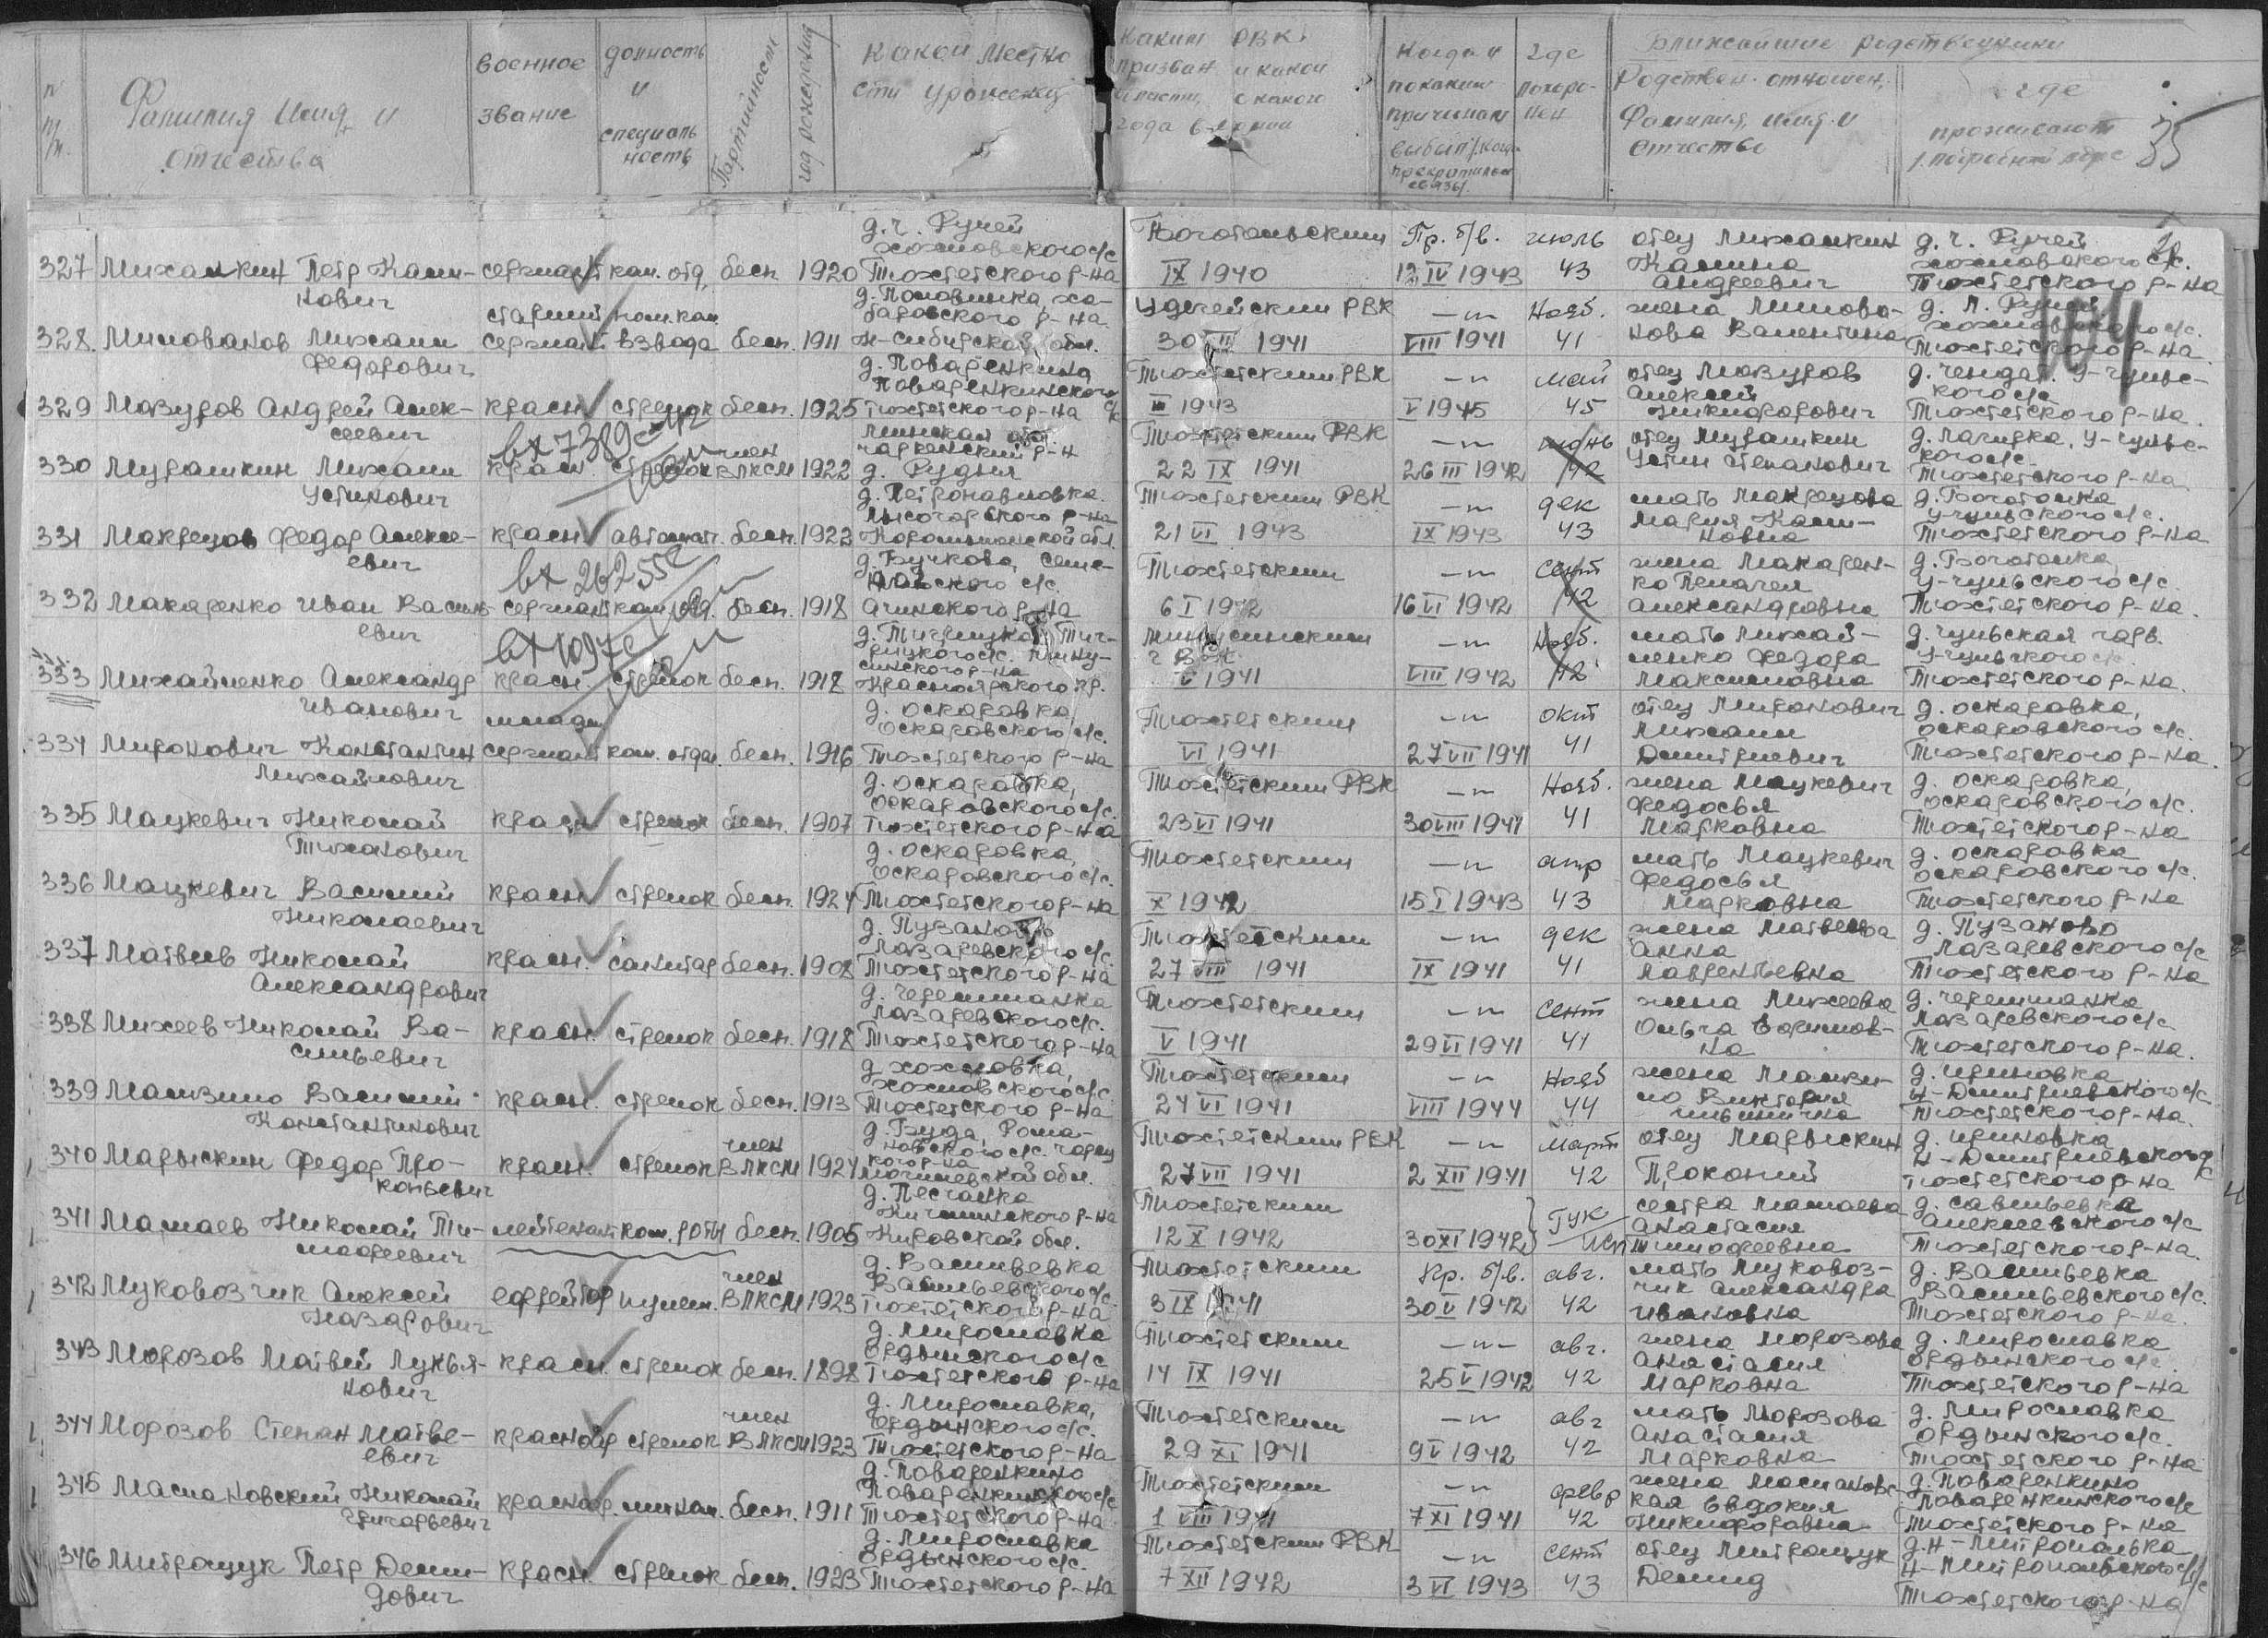 № п/п.
Фамилия Имя и отчества
военное звание
должность и специальность
Партийность
год рождения
какой местности уроженец
каким РВК призван и какой области, с какого года в армии
Когда и по каким причинам выбыл /когда прекратилась связь/.
где похоронен
Ближайшие родственники
Родствен. отношен. Фамилия, имя и Отчество
где проживают /подробный адрес
35
104
327 Михалкин Петр Калинович сержант ком. отд. бесп. 1920 д. Ч. Ручей хохловского с/с Тюхтетского р-на Боготольским IX 1940 Пр. б/в. 12 IV 1943 июль 43 отец Михалкин Калина Андреевич д. Ч. Ручей хохловского с/с. Тюхтетского р-на
328. Милованов Михаил Федорович старший сержант пом. ком. взвода бесп. 1911 д. Половинка, Н-Сибирской обл. РВК 1941 —"— VIII 1941 Нояб. 41 жена Милованова Валентина д. П. Ручей хохловского с/с. Тюхтетского р-на.
329 Мазуров Андрей Алексеевич красн. стрелок бесп. 1925 д. Поваренкина Поваренкинского с/с Тюхтетского р-на Тюхтетским РВК 1943 —"— V 1945 май 45 отец Мазуров Алексей Никифорович д. Чендат. У-Чульского с/с Тюхтетского р-на.
вх 7389с
330 Мурашкин Михаил Устинович красн. стрелок член ВЛКСМ 1922 д. Рудня Тюхтетским РВК 22 IX 1941 —"— 26 III 1942 июнь 42 отец Мурашкин Устин Степанович д. Лагирка, У-Чульского с/с. Тюхтетского р-на
331 Макрецов Федор Алексеевич красн. автомат. бесп. 1922 д. Петропавловка. Лысогорского р-на Тюхтетским РВК 21 VI 1943 —"— IX 1943 дек 43 мать Макрецова Мария д. Боготолка, У-Чульского с/с. Тюхтетского р-на
вх 26255с
332 Макаренко Иван Васильевич сержант ком. отд. бесп. 1918 д. Бучкова, с/с. Ачинского р-на Тюхтетским 6 I 1942 —"— 16 VI 1942 сент 42 жена Макаренко Пелагея Александровна д. Боготолка, У-Чульского с/с. Тюхтетского р-на.
вх 1097с
333 Михайленко Александр Иванович красн. стрелок бесп. 1918 Минусинского р-на Красноярского кр. Минусинским ГВК V 1941 —"— VIII 1942 Нояб. 42 мать Михайленко Федора Максимовна д. Чульская гарь. У-Чульского с/с. Тюхтетского р-на.
334 Миронович Константин Михайлович младш. сержант ком. отдел. бесп. 1916 д. Оскаровка, Оскаровского с/с. Тюхтетского р-на Тюхтетским VI 1941 —"— 27 VII 1941 окт 41 отец Миронович Михаил Дмитриевич д. Оскаровка, Оскаровского с/с. Тюхтетского р-на.
335 Мацкевич Николай Тихонович красн. стрелок бесп. 1907 д. Оскаровка, Оскаровского с/с. Тюхтетского р-на Тюхтетским РВК 23 VI 1941 —"— 30 VIII 1941 Нояб. 41 жена Мацкевич Федосья Марковна д. Оскаровка, Оскаровского с/с. Тюхтетского р-на
336 Мацкевич Василий Николаевич красн. стрелок бесп. 1924 д. Оскаровка, Оскаровского с/с. Тюхтетского р-на Тюхтетским X 1942 —"— 15 I 1943 апр 43 мать Мацкевич Федосья Марковна д. Оскаровка Оскаровского с/с. Тюхтетского р-на
337 Матвеев Николай Александрович красн. санитар бесп. 1908 д. Пузаново Лазаревского с/с. Тюхтетского р-на Тюхтетским 27 VIII 1941 —"— IX 1941 дек 41 жена Матвеева Анна Лаврентьевна д. Пузаново Лазаревского с/с Тюхтетского р-на
338 Михеев Николай Васильевич красн. стрелок бесп. 1918 д. Черемшанка Лазаревского с/с. Тюхтетского р-на Тюхтетским V 1941 —"— 29 VI 1941 сент 41 жена Михеева Ольга д. Черемшанка Лазаревского с/с Тюхтетского р-на.
339 Малзило Василий Константинович красн. стрелок бесп. 1913 д. хохловка, хохловского с/с. Тюхтетского р-на Тюхтетским 24 VI 1941 —"— VIII 1944 Нояб 44 жена Виктория д. Ириновка Н-Дмитриевского с/с Тюхтетского р-на.
340 Марыскин Федор Прокопьевич красн. стрелок член ВЛКСМ 1924 д. Буда, Романовского с/с. Могилевской обл. Тюхтетским РВК 27 VII 1941 —"— 2 XII 1941 март 42 отец Марыскин Прокопий д. Ириновка Н-Дмитриевского с/с Тюхтетского р-на
341 Мамаев Николай Тимофеевич лейтенант ком. роты бесп. 1905 д. Песчанка Кировской обл. Тюхтетским 12 X 1942 30 XI 1942 ГУК сестра Мамаева Анастасия Тимофеевна д. Савельевка Алексеевского с/с Тюхтетского р-на.
342 Муковозчик Алексей Назарович ефрейтор пулем. член ВЛКСМ 1923 д. Васильевка Васильевского с/с. Тюхтетского р-на Тюхтетским 3 IX 1941 Пр. б/в. 30 V 1942 авг. 42 мать Муковозчик Александра Ивановна д. Васильевка Васильевского с/с. Тюхтетского р-на.
343 Морозов Матвей Лукьянович красн. стрелок бесп. 1898 д. Мирославка Ордынского с/с Тюхтетского р-на Тюхтетским 14 IX 1941 —"— 25 V 1942 авг. 42 жена Морозова Анастасия Марковна д. Мирославка Ордынского с/с. Тюхтетского р-на
344 Морозов Степан Матвеевич красноар стрелок член ВЛКСМ 1923 д. Мирославка, Ордынского с/с. Тюхтетского р-на Тюхтетским 29 XI 1941 —"— 9 V 1942 авг 42 мать Морозова Анастасия Марковна д. Мирославка Ордынского с/с. Тюхтетского р-на
345 Маслановский Николай Григорьевич красноар. бесп. 1911 д. Поваренкино Поваренкинского с/с Тюхтетского р-на Тюхтетским 1 VIII 1941 —"— 7 XI 1941 февр 42 жена Маслановская Евдокия Никифоровна д. Поваренкино Поваренкинского с/с Тюхтетского р-на
346 Митрощук Петр Демидович красн. стрелок бесп. 1923 д. Мирославка Ордынского с/с. Тюхтетского р-на Тюхтетским РВК 7 XII 1942 —"— 3 VI 1943 сент 43 отец Митрощук Демид д. Н-Митрополька Н-Митропольского с/с Тюхтетского р-на